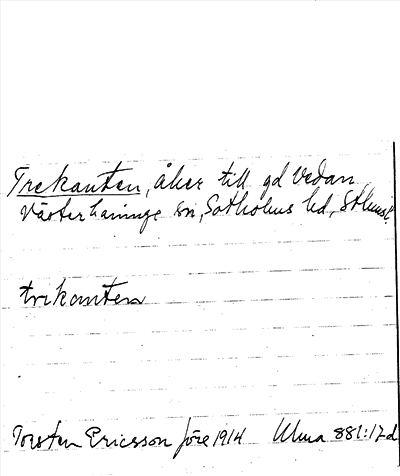 Trekanten, åker till gd Vedan
Västerhaninge sn, Sotholms hd, Sthmsl.
trekanten
Torsten Ericsson före 1914 Ulma 881:12d